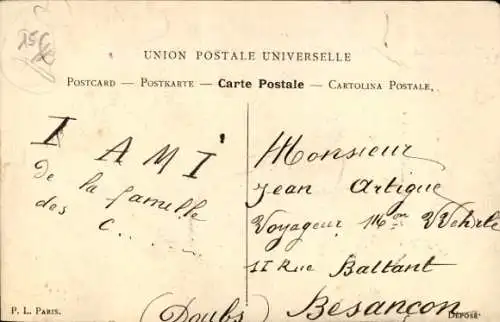 156
UNION POSTALE UNIVERSELLE
POSTCARD — POSTKARTE — Carte Postale — CARTOLINA POSTALE.
I AMI
de la famille
des C......
Monsieur
Jean Artigue
Voyageur Mon Wehrlé
11 Rue Battant
(Doubs) Besançon
P. L. PARIS.
DÉPOSÉ